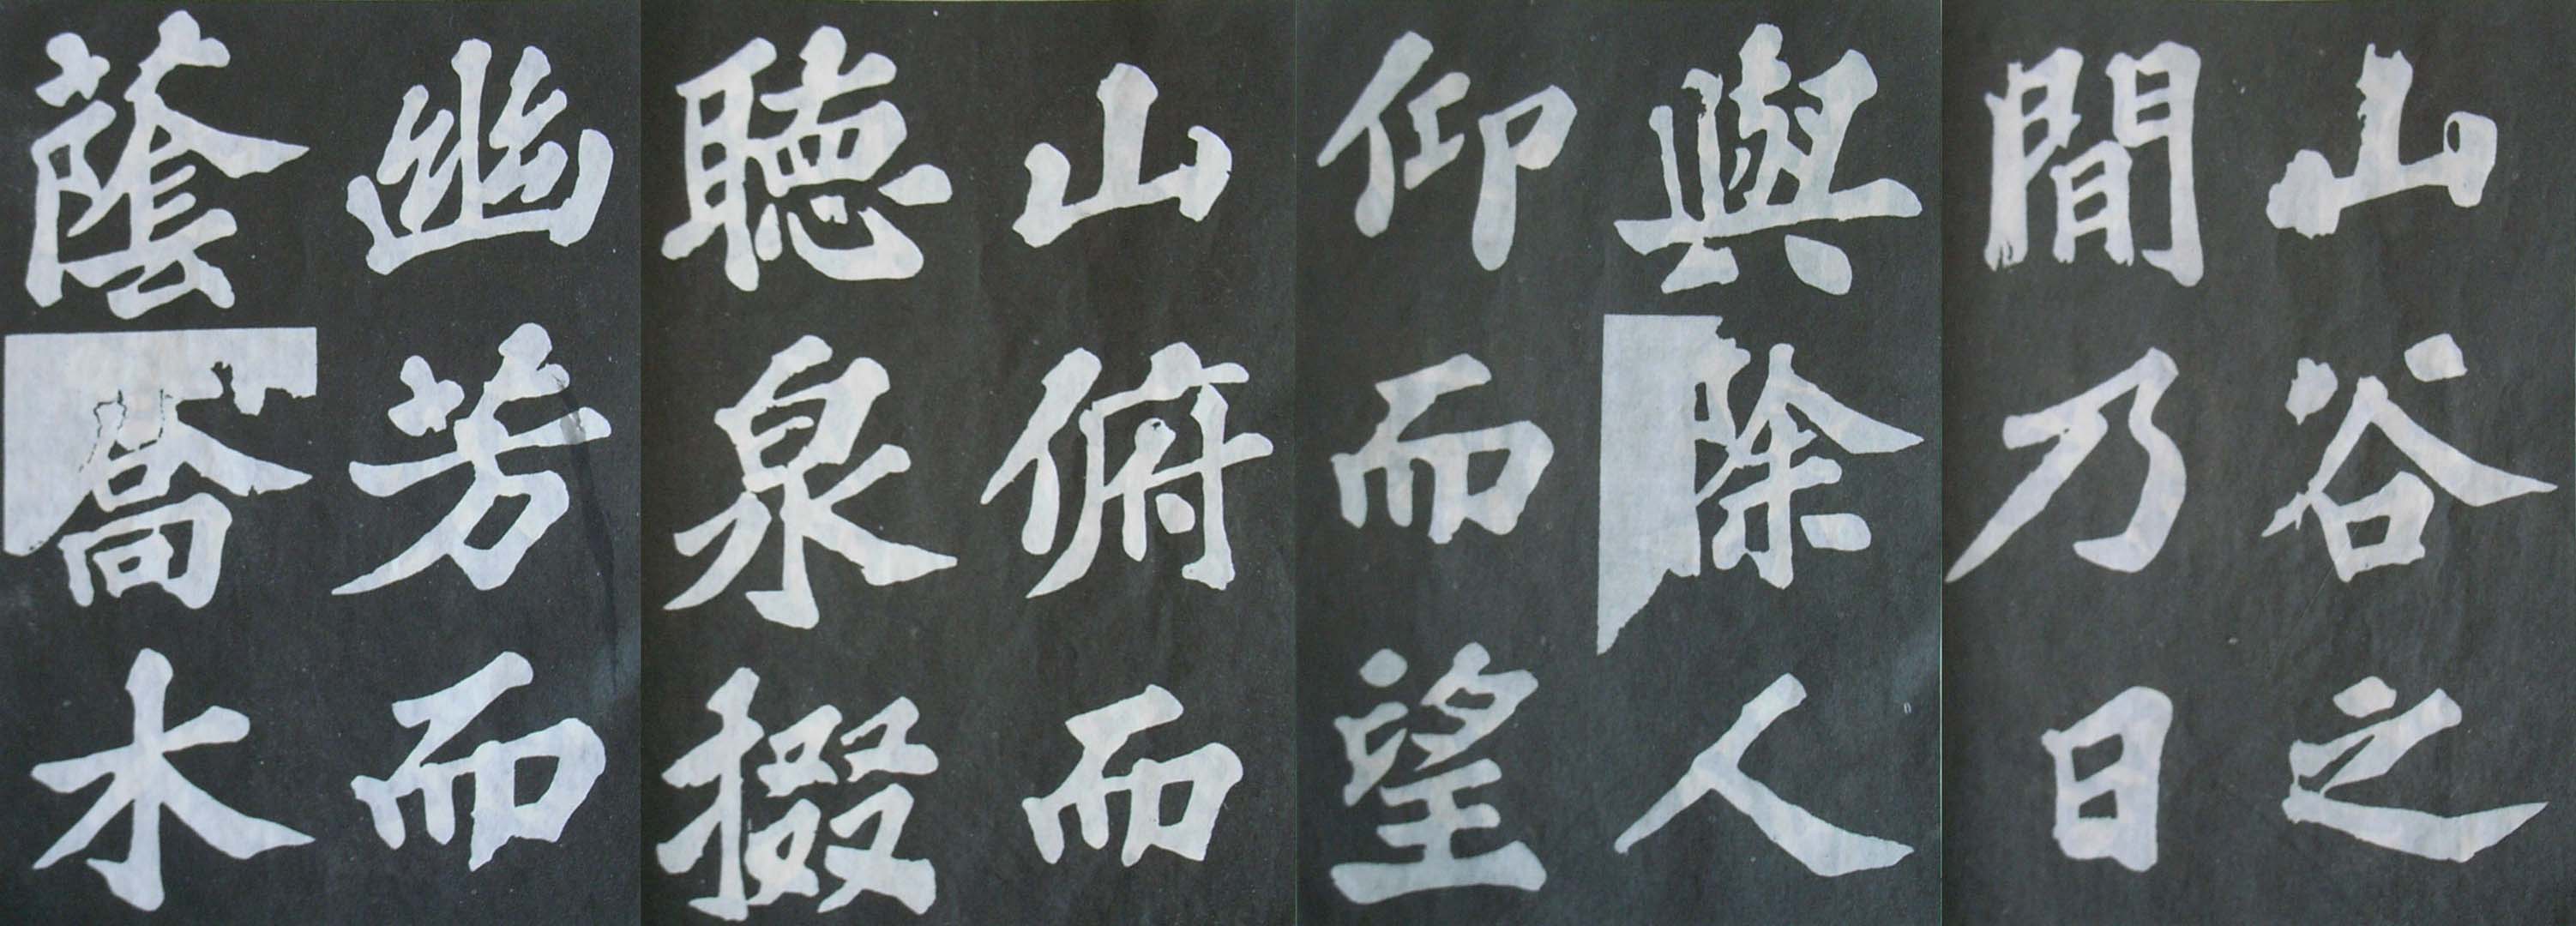 山谷之
間乃日
與除人
仰而望
山俯而
聽泉掇
幽芳而
蔭喬木